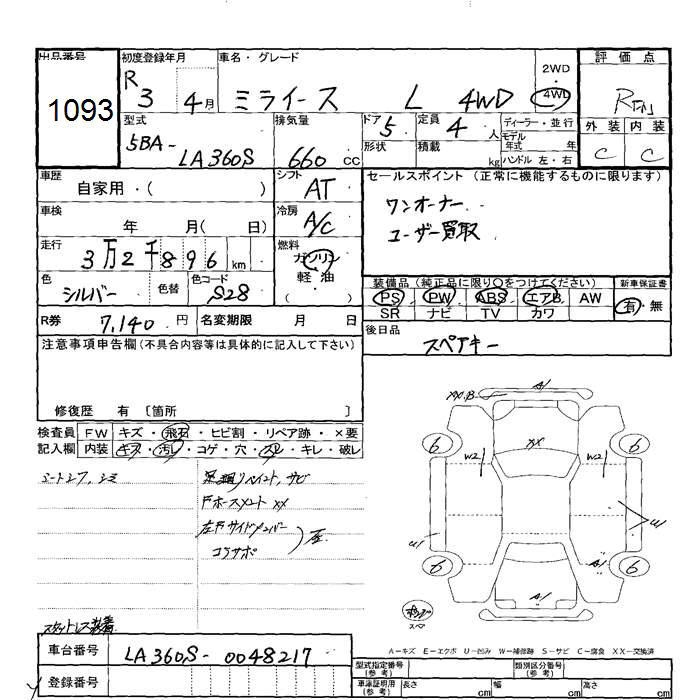 出品番号 初度登録年月 車名・グレード 2WD・4WD 評価点
1093 R3 4月 ミライース L 4WD
外装 内装
C C
型式 排気量 ドア 定員 ディーラー・並行
5BA-LA360S 660cc 5 4人 モデル年式 年
形状 積載 kg ハンドル 左・右
車歴 シフト セールスポイント(正常に機能するものに限ります)
自家用・( ) AT ワンオーナー
車検 冷房 ユーザー買取
年 月( 日) A/C
走行 燃料
3万2千896km ガソリン
軽・油
( )
色 色替 色コード
シルバー S28
装備品(純正品に限り○をつけてください) 新車保証書
PS PW ABS エアB AW 有・無
SR ナビ TV カワ
R券 7,140円 名変期限 月 日 後日品
スペアキー
注意事項申告欄(不具合内容等は具体的に記入して下さい)
修復歴 有〔箇所 〕
検査員 FW キズ・飛石・ヒビ割・リペア跡・×要
記入欄 内装 キズ・汚レ・コゲ・穴・スレ・キレ・破レ
足廻りペイント、サビ
XX
左Fサイドメンバー
コアサポ
A1
XX
W2 W2
6 6
U1
6 6
A1
スペア
スタットレス装着
A=キズ E=エクボ U=凹み W=補修跡 S=サビ C=腐食 XX=交換済
車台番号 LA360S-0048217
登録番号
型式指定番号(参考) 類別区分番号(参考)
車庫証明用(参考) 長さ cm 幅 cm 高さ cm